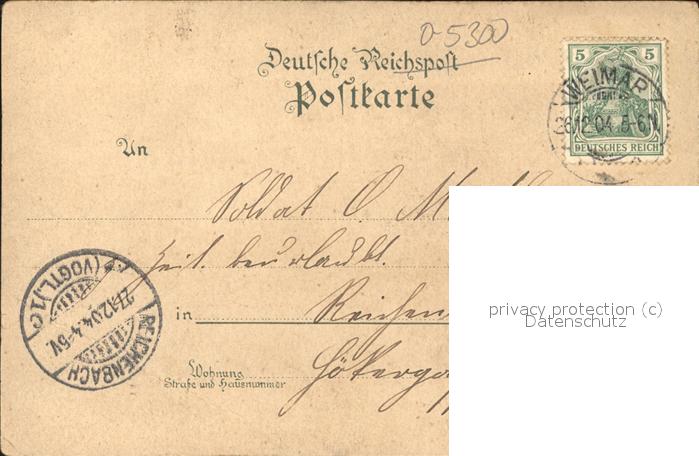 0-5300
Deutsche Reichspost
Postkarte
5 5
DEUTSCHES REICH
WEIMAR
26.12.04.5-6N
An
Soldat O. M
zeit. beurlaubt.
in Reichen
Wohnung
Straße und Hausnummer
REICHENBACH
(VOGTL.) 1 c
27.12.04.4-5V.
privacy protection (c)
Datenschutz